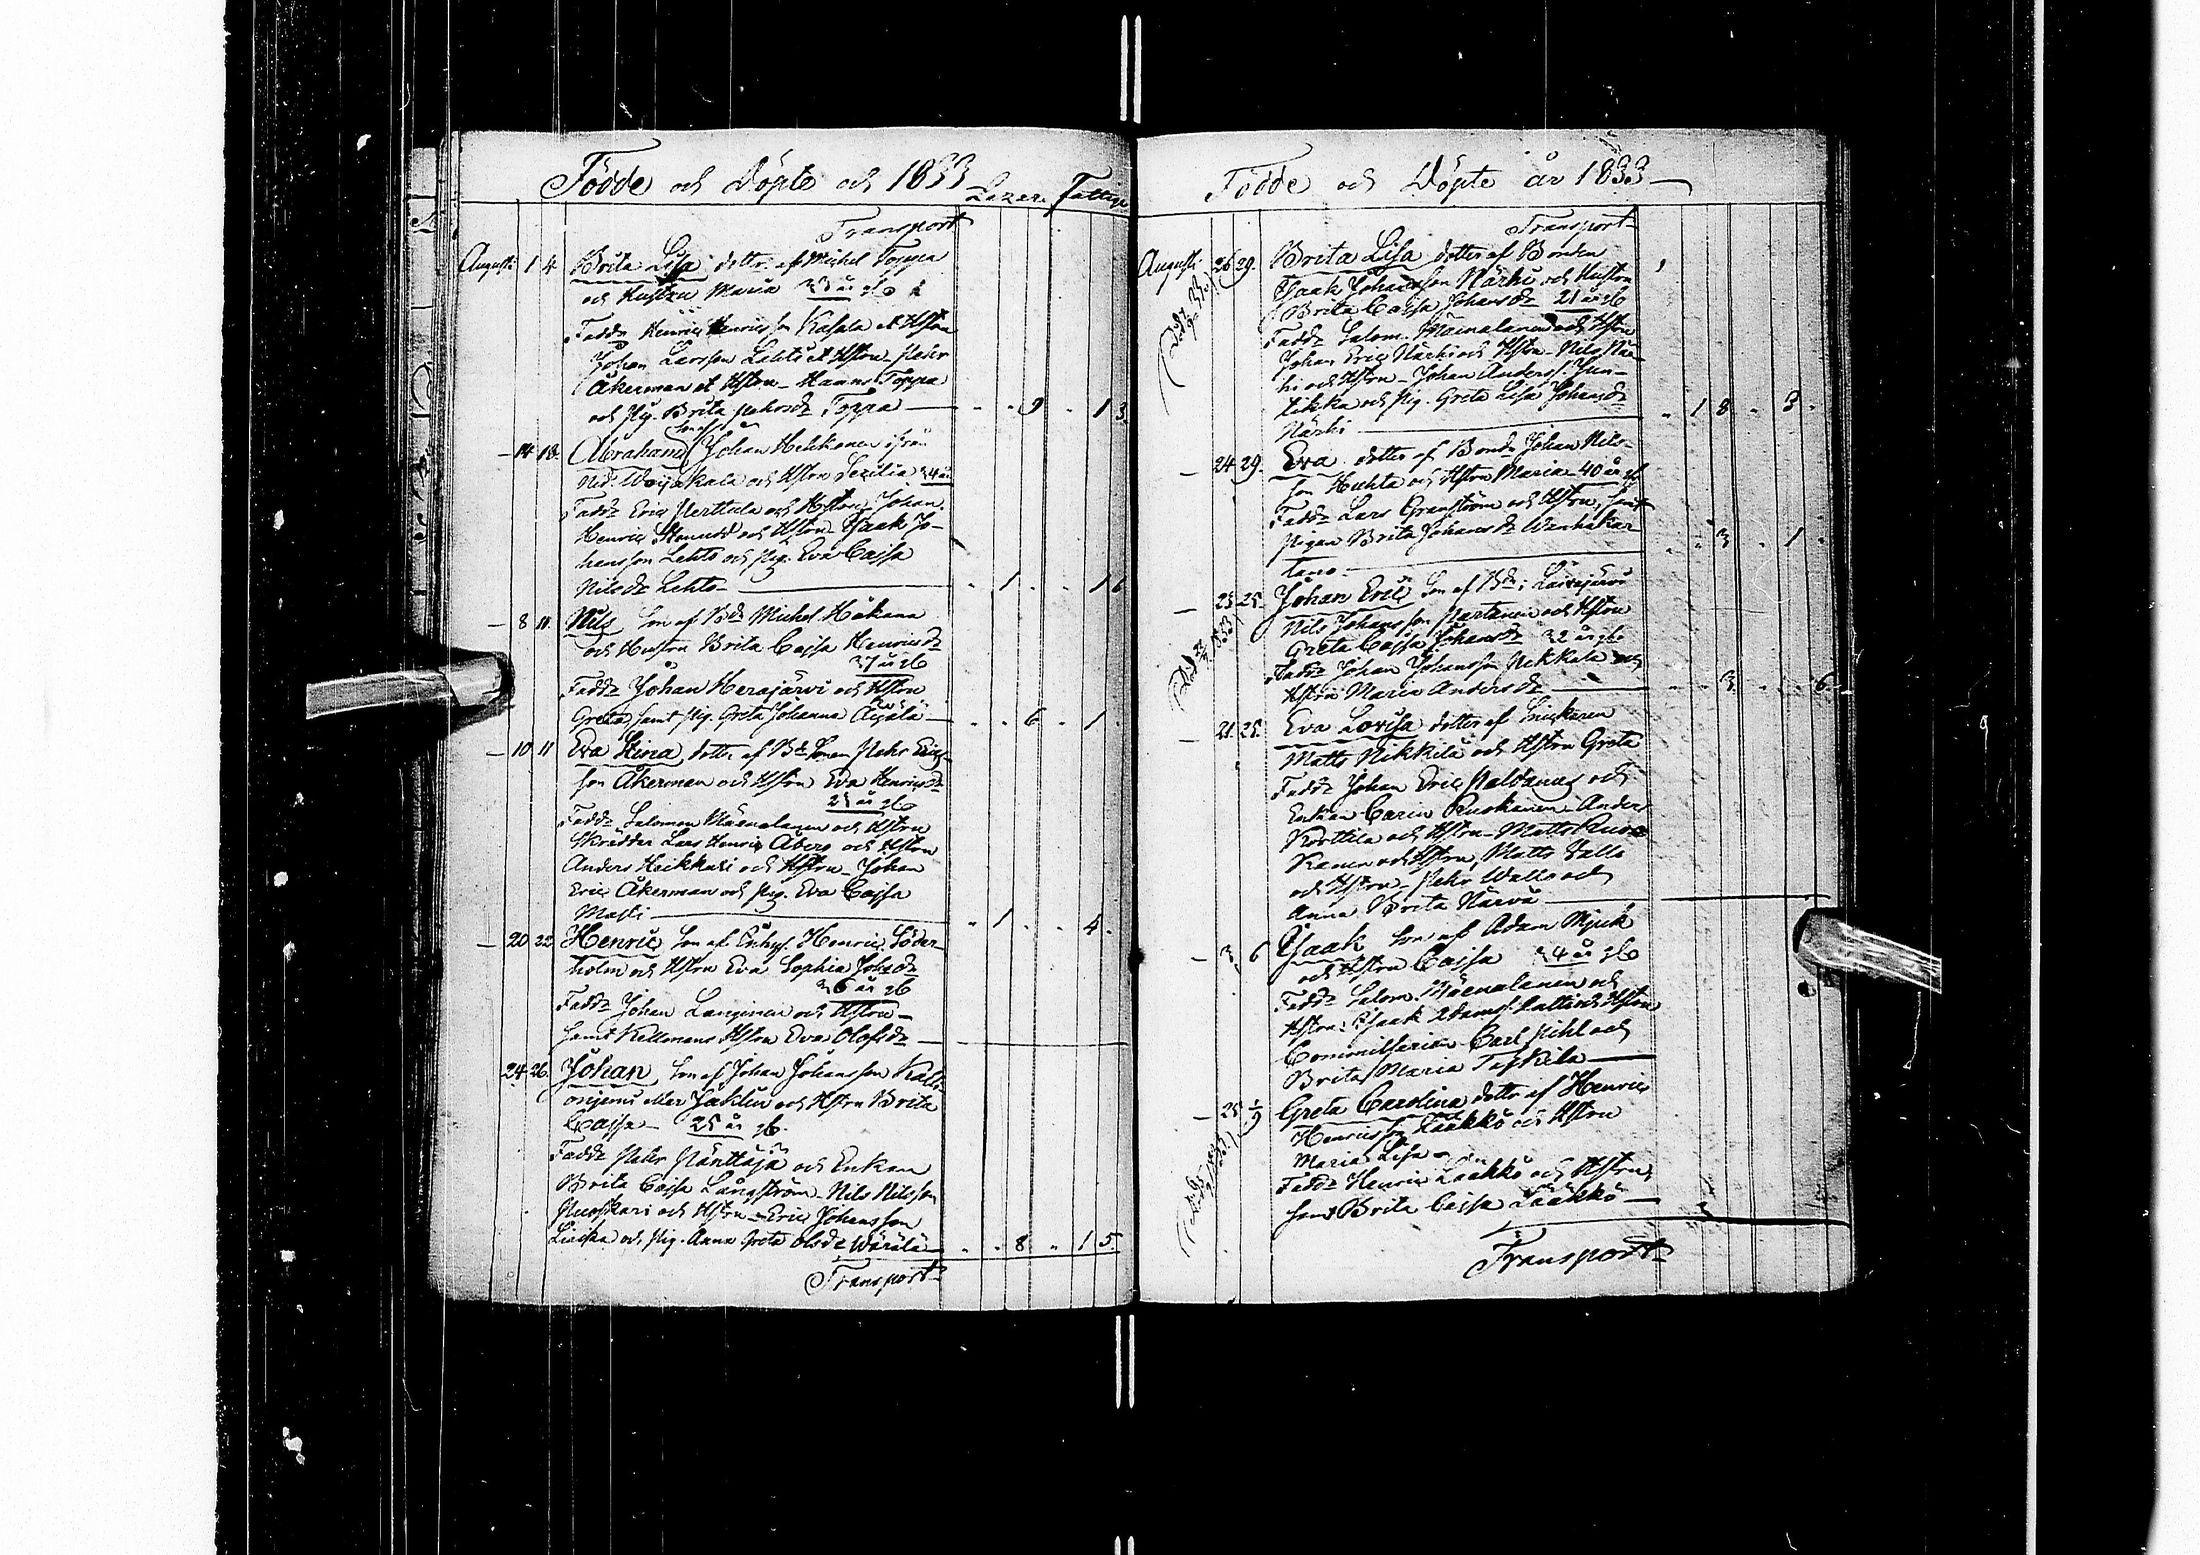 Födde och Döpte och 1833 Lazar. Fattige
Transport
Augusti 1 4 Brita Lisa dotter af Michel Toppa
och Hustru Maria 33 år gl.
Faddr Henric Henricsson Kasala et Hstru
Johan Larsson Lehti et Hstru Petter
Åkerman et Hstru - Hanns Toppa
och Pig. Brita Pehrsdr Toppa - - 9 - 1 3
- 14 18. Abraham Son af Johan Heikkanen ifrån
Ned. och Hstru Cecilia 24 år
Faddr Eric Perttula och Hstru Johan
Henric och Hstru Isaak Jo-
hansson Lehto och Pig. Eva Cajsa
Nilsdr Lehto - 1 - - 1 6
- 8 11. Nils Son af Bdn Michel Håkana
och Hustru Brita Cajsa Henricsdr
37 år gl.
Faddr Johan Herajärvi och Hstru
Greta, samt Pig. Greta Johanna Alatalo - - 6 - 1 -
- 10 11 Eva Stina dotter af Bde Sonen Pehr Erics-
son Åkerman och Hstru Eva Henricsdr
25 år gl.
Faddr Salomon Mäenalanen och Hstru
Skrädder Lars Henric Åberg och Hstru
Anders Heikkari och Hstru - Johan
Eric Åkerman och Pig. Eva Cajsa
Masti - 1 - - 4 -
- 20 22 Henric Son af Enhys. Henric Söder-
holm och Hstru Eva Sophia Johsdr
36 år gl
Faddr Johan Langinen och Hstru -
samt Kellmans Hstru Eva Olofsdr
24 26. Johan Son af Johan Johansson Kall-
eller Jaklin och Hstru Brita
Cajsa - 25 år gl.
Faddr Petter Mänttäjä och Enkan
Brita Cajsa Långström - Nils Nilsson
Puoskari och Hstru - Eric Johansson
och Pig. Anna Greta Olsdr Wärälä - - 8 - 1 5.
Transport
Födde och Döpte år 1833
Transport
Augusti 26 29. Brita Lisa dotter af Bonden
Isaak Johansson Närhi och Hustru
Brita Cajsa Johansdr 21 år gl
Faddr Salom. Mäenalanen och Hstru
Johan Eric Närhi och Hstru - Nils När-
hi och Hstru - Johan Anderss. Jun-
tikka och Pig. Greta Lisa Johansdr
Närhi - 1 8 - 3 -
- 24 29. Eva dotter af Bond. Johan Nils-
son Huhta och Hstru Maria 40 år gl
Faddr Lars Granström och Hstru, samt
Pigan Brita Johansdr Wanhakar-
tano - - 3 - 1 -
- 23 25. Johan Eric Son af Bdn i Laxsjärvi
Nils Johansson Martanen och Hstru
Greta Cajsa Johansdr 32 år gl.
Faddr Johan Johansson Pekkala och
Hstru Maria Andersdr - - 3 - - 6
- 21 25. Eva Lovisa dotter af Snickaren
Matts Nikkilä och Hstru Greta
Faddr Johan Eric Paldanus och
Enkan Carin Ruokanen - Anders
Korttila och Hstru - Matts Ruo-
kanen och Hstru, Matts Salla
och Hstru - Pehr Walla och
Anna Brita Närvä
- 3. 6 Isaak Son af Adam Mjuk
och Hstru Cajsa 24 år gl.
Faddr Salom. Mäenalanen och
Hstru, Isaak Adams. och Hstru
Commissarien Carl Pihl och
Brita Maria Taskila
- 25 1/9 Greta Carolina dotter af Henric
Henricsson Laakkö och Hstru
Maria Lisa -
Faddr Henric Laakkö och Hstru,
samt Brita Cajsa Laakkö
Transport